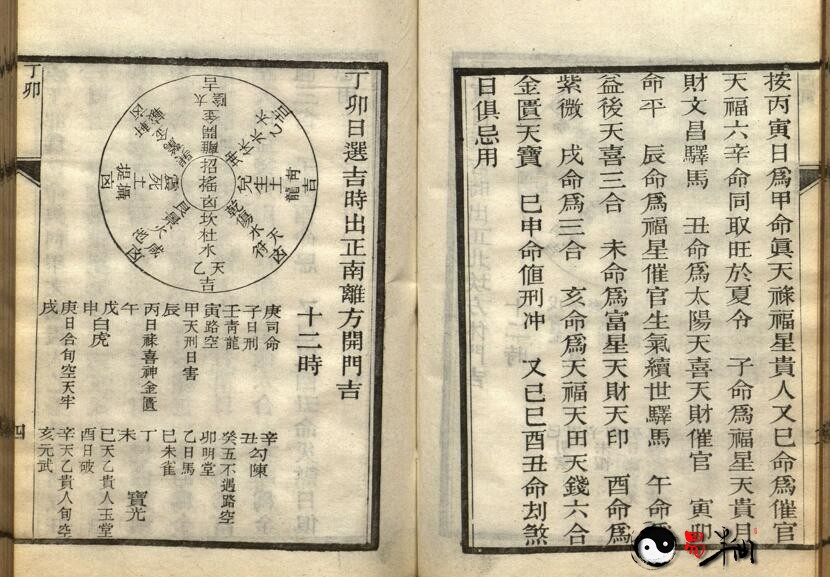 按丙寅日爲甲命眞天祿福星貴人又巳命爲催官
天福六辛命同取旺於夏令 子命爲福星天貴月
財文昌驛馬 丑命爲太陽天喜天財催官 寅卯
命平 辰命爲福星催官生氣續世驛馬 午命
益後天喜三合 未命爲富星天財天印 酉命爲
紫微 戌命爲三合 亥命爲天福天田天錢六合
金匱天寶 巳申命値刑冲 又己巳酉丑命刦煞
日俱忌用
丁卯日選吉時出正南離方開門吉
十二時
庚司命
子日刑
壬青龍
寅路空
甲天刑日害
辰
丙日祿喜神金匱
午
戊白虎
申
庚日合旬空天牢
戌
辛勾陳
丑
癸五不遇路空
卯明堂
乙日馬
巳朱雀
丁 寶光
未
己天乙貴人玉堂
酉日破
辛天乙貴人旬空
亥元武
吉
太陰
金
開
離
招搖
凶
坎
杜
水
天乙
吉
青龍
吉
土
生
兌
乾
傷
水
天符
凶
艮
景
火
咸池
凶
攝提
凶
土
死
震
丁卯
四